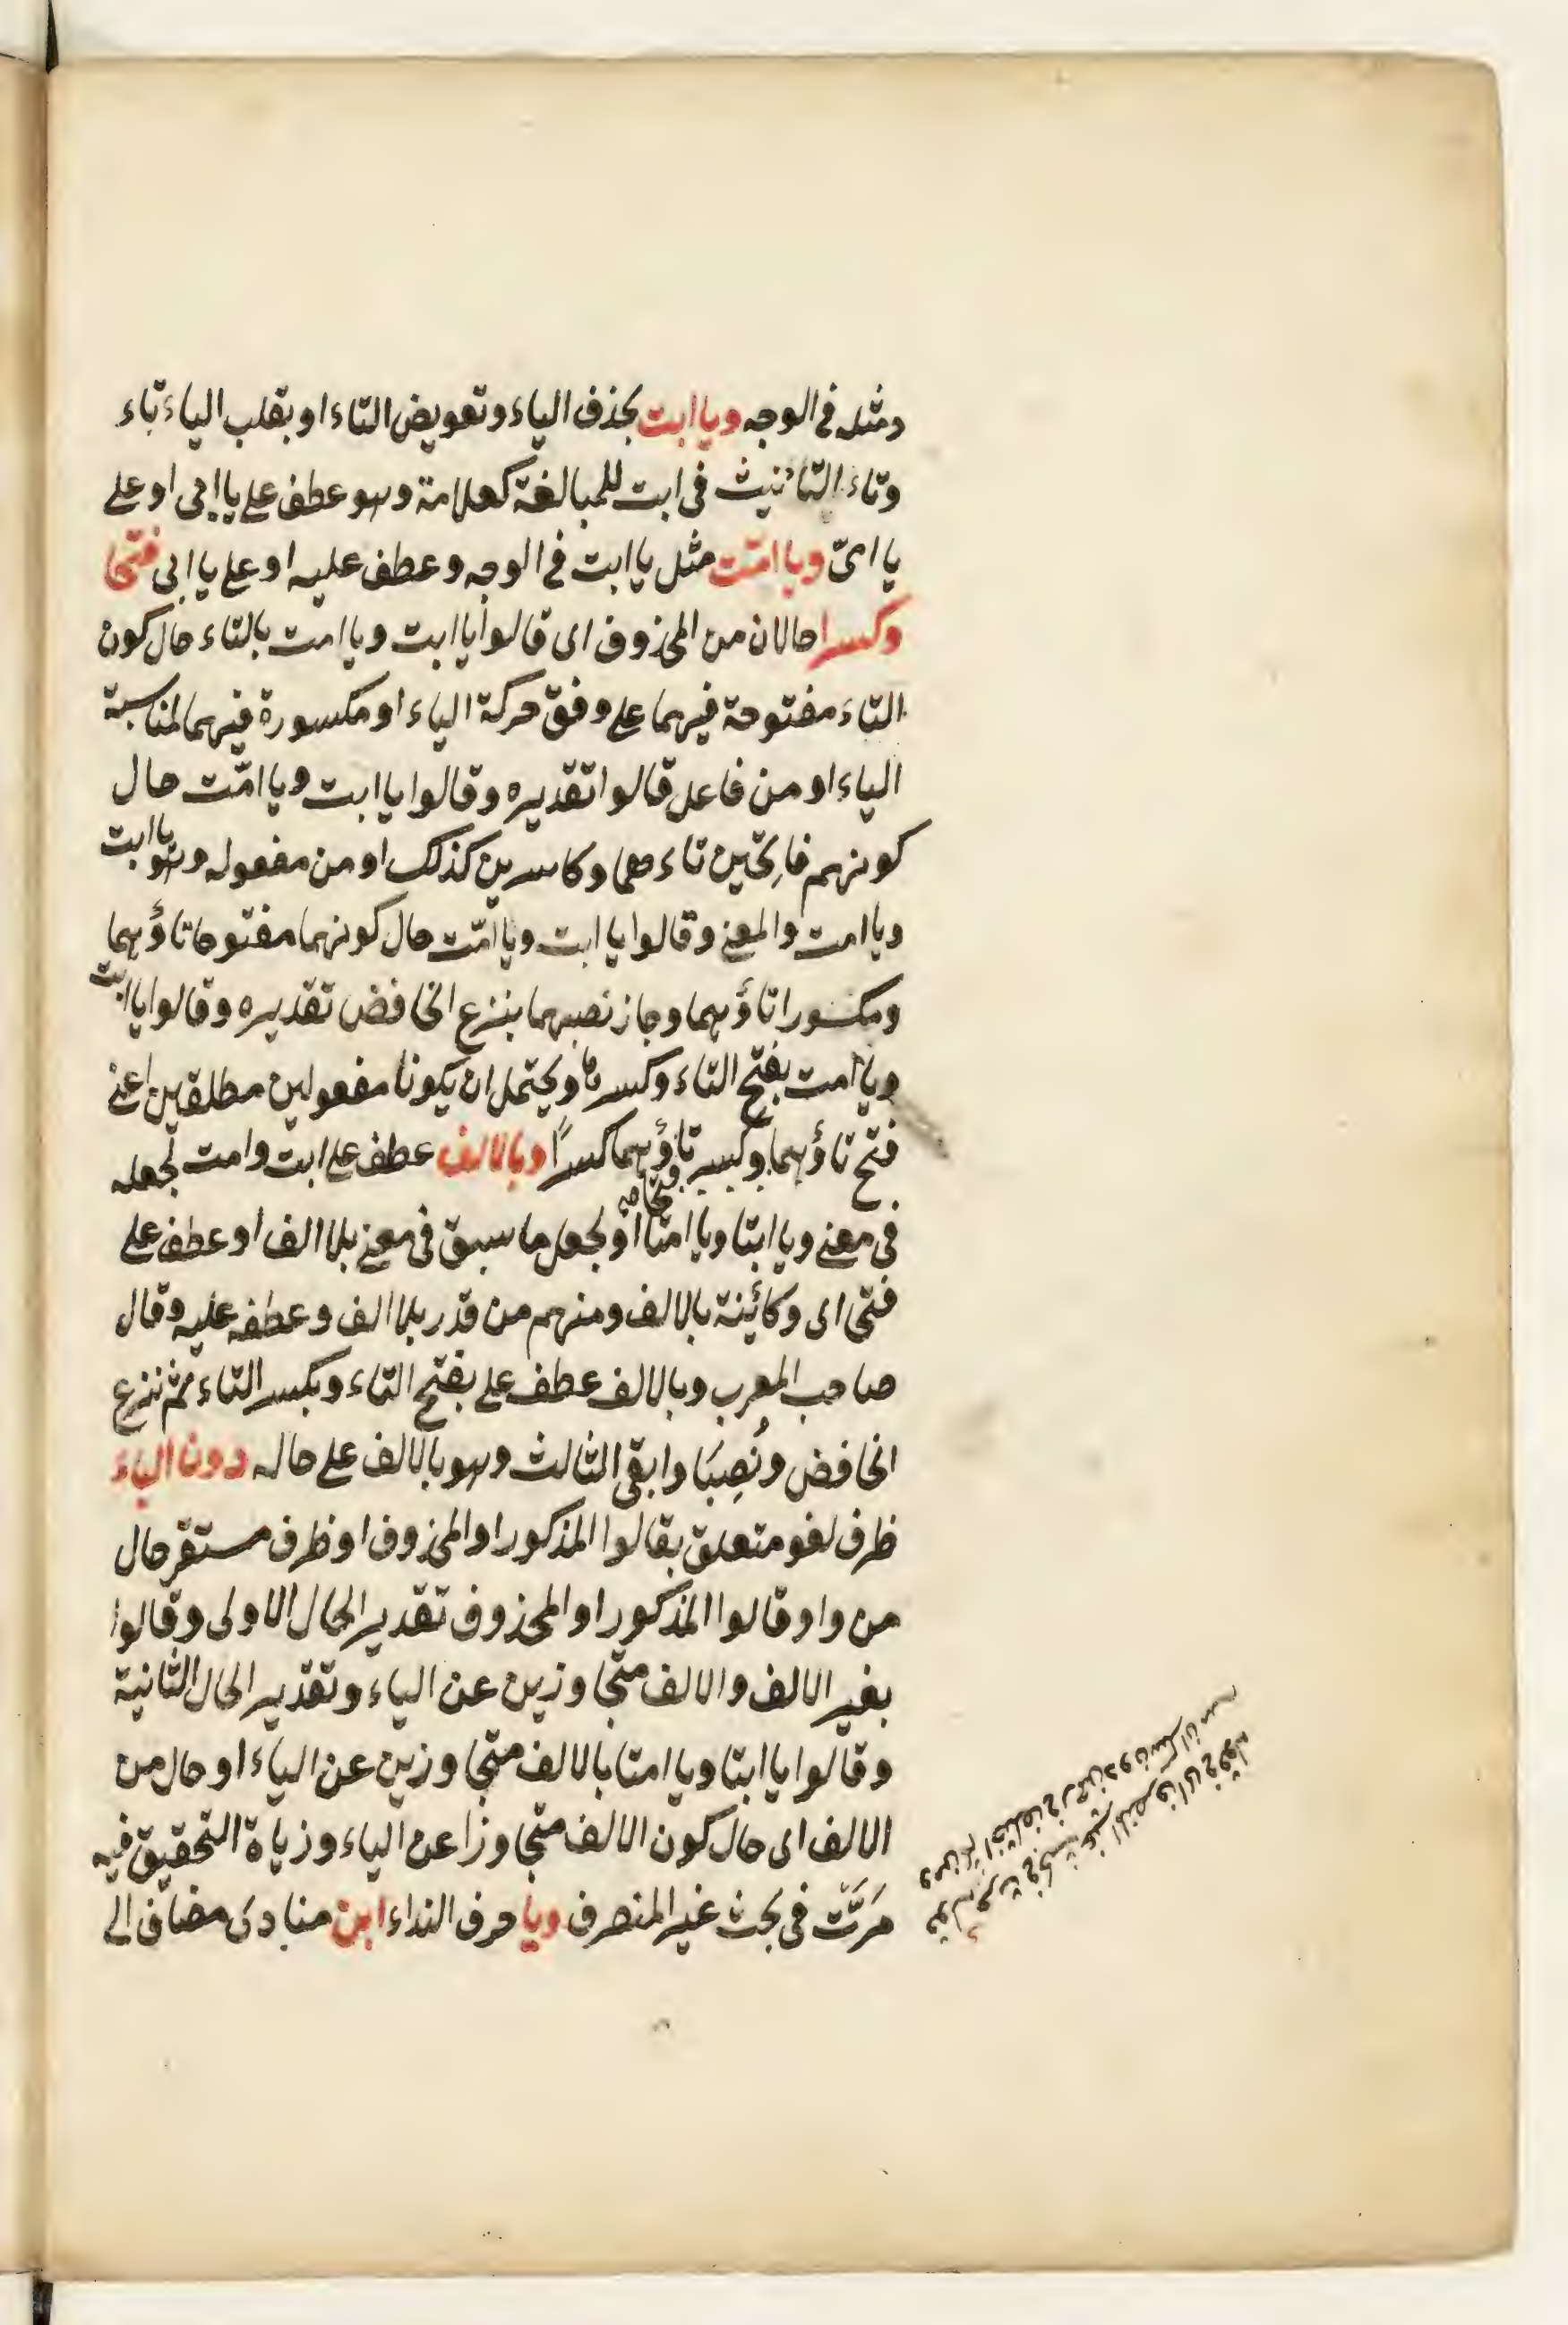 ومثله في الوجه ويا ابت بحذف الياء وتعويض التاء او بقلب الياء تاء
وتاء التانيث في ابت للمبالغة كعلامة وهو عطف على يا ابي او على
يا امىّ ويا امّت مثل يا ابت في الوجه وعطف عليه او على يا ابى فتحا
وكسرا حالان من المحذوف اى قالوا يا ابت ويا امت بالتاء حال كون
التاء مفتوحة فيهما على وفق حركة الياء او مكسورة فيهما لمناسبة
الياء او من فاعل قالوا تقديره وقالوا يا ابت ويا امّت حال
كونهم فاتحين تاءهما وكاسرين كذلك او من مفعوله وهو يا ابت
ويا امت والمعنى وقالوا يا ابت ويا امّت حال كونهما مفتوحا تاؤهما
ومكسورا تاؤهما وجاز نصبهما بنزع الخافض تقديره وقالوا يا ابت
ويا امت بفتح التاء وكسرها ويحتمل ان يكونا مفعولين مطلقين اعنى
فتح تاؤهما وكسر تاؤهما كسرًا وبالالف عطف على ابت وامت لجعله
فتحا صح
في معنى ويا ابتا ويا امتا او لجعل ما سبق في معنى بلا الف او عطف على
فتحا اى وكائنة بالالف ومنهم من قدر بلا الف وعطفه عليه وقال
صاحب المعرب وبالالف عطف على بفتح التاء وبكسر التاء ثم نزع
الخافض ونُصِبَا وابقى الثالث وهو بالالف على حاله دون الياء
ظرف لغو متعلق بقالوا المذكور او المحذوف او ظرف مستقر حال
من واو قالوا المذكور او المحذوف تقدير الحال الاولى وقالوا
بغير الالف والالف متجاوزين عن الياء وتقدير الحال الثانية
وقالوا يا ابتا ويا امتا بالالف متجاوزين عن الياء او حال من
الالف اى حال كون الالف متجاوزا عن الياء وزياة التحقيق فيه
مَرَّت في بحث غير المنصرف ويا حرف النداء ابن منادى مضاف الى